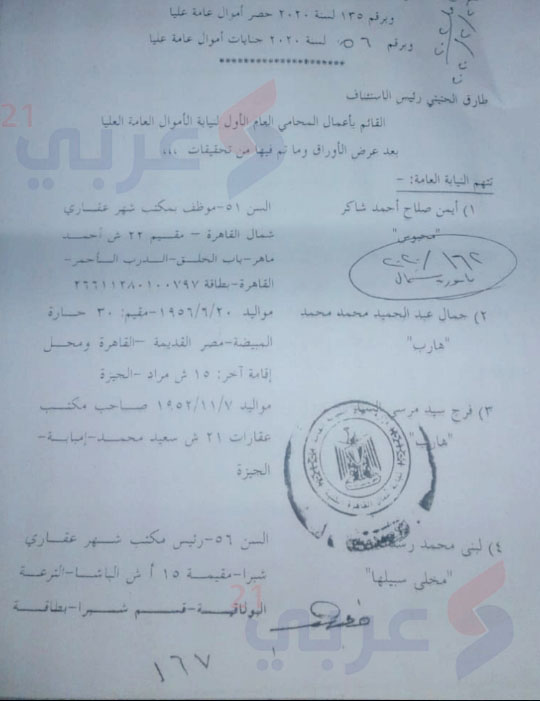 وبرقم ١٣٥ لسنة ٢٠٢٠ حصر أموال عامة عليا
وبرقم ٥٦ لسنة ٢٠٢٠ جنايات أموال عامة عليا
طارق الحتيتي رئيس الاستئناف
القائم بأعمال المحامي العام الأول لنيابة الأموال العامة العليا
بعد عرض الأوراق وما تم فيها من تحقيقات ...
تتهم النيابة العامة: -
١) أيمن صلاح أحمد شاكر
"محبوس"
السن ٥١-موظف بمكتب شهر عقاري
شمال القاهرة - مقيم ٢٢ ش أحمد
ماهر-باب الخلق-الدرب الأحمر-
القاهرة-بطاقة ٢٦٦١١٢٨٠١٠٠٧٩٧
١٦٢ / ٢٠٢٠
٢) جمال عبد الحميد محمد محمد
"هارب"
مواليد ١٩٥٦/٦/٢٠-مقيم: ٣٠ حارة
المبيضة-مصر القديمة -القاهرة ومحل
إقامة آخر: ١٥ ش مراد -الجيزة
٣) فرج سيد مرسي
"هارب"
مواليد ١٩٥٢/١١/٧ صاحب مكتب
عقارات ٢١ ش سعيد محمد-إمبابة-
الجيزة
٤) لبنى محمد
"مخلى سبيلها"
السن ٥٦-رئيس مكتب شهر عقاري
شبرا-مقيمة ١٥ أ ش الباشا-الترعة
البولاقية-قسم شبرا-بطاقة
١٦٧
عربي 21
عربي 21